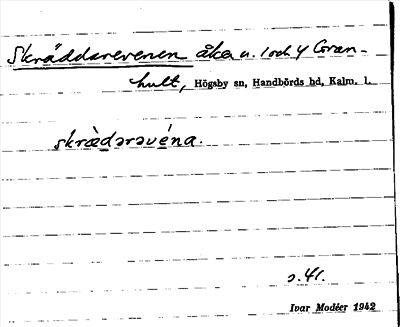 Skräddarevenen åker u. 1 och 4 Goran-
hult, Högsby sn, Handbörds hd, Kalm. l.
skrædərəvéna.
s. 41.
Ivar Modéer 1942